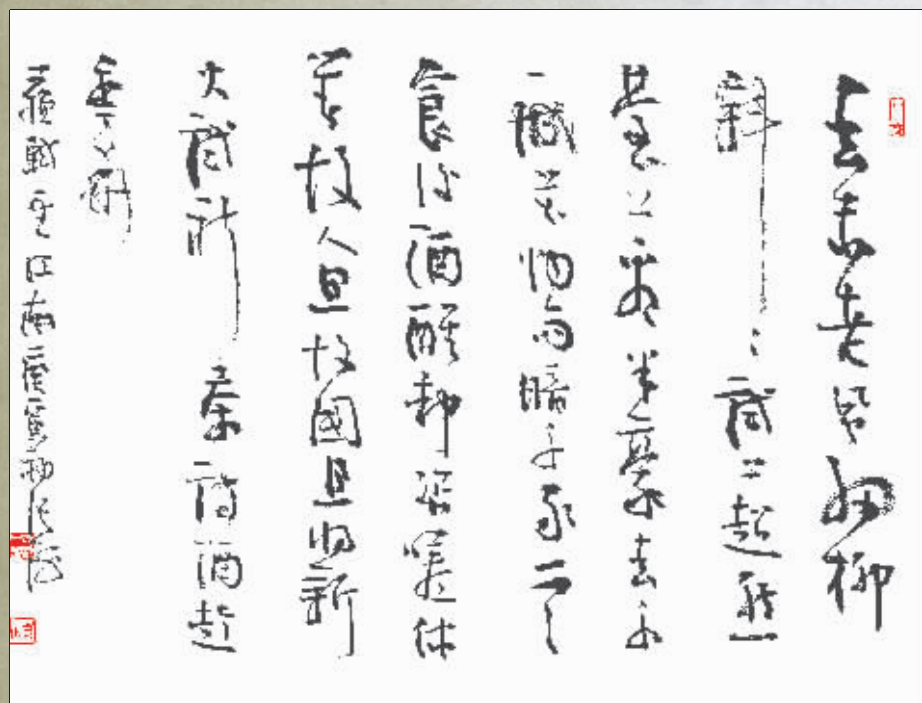 春未老風細柳
斜〻試上超然
臺上看半壕春水
一城花烟雨暗千家寒
食後酒醒却咨嗟休
對故人思故國且将新
火試新茶詩酒趁
年華
蘇軾望江南